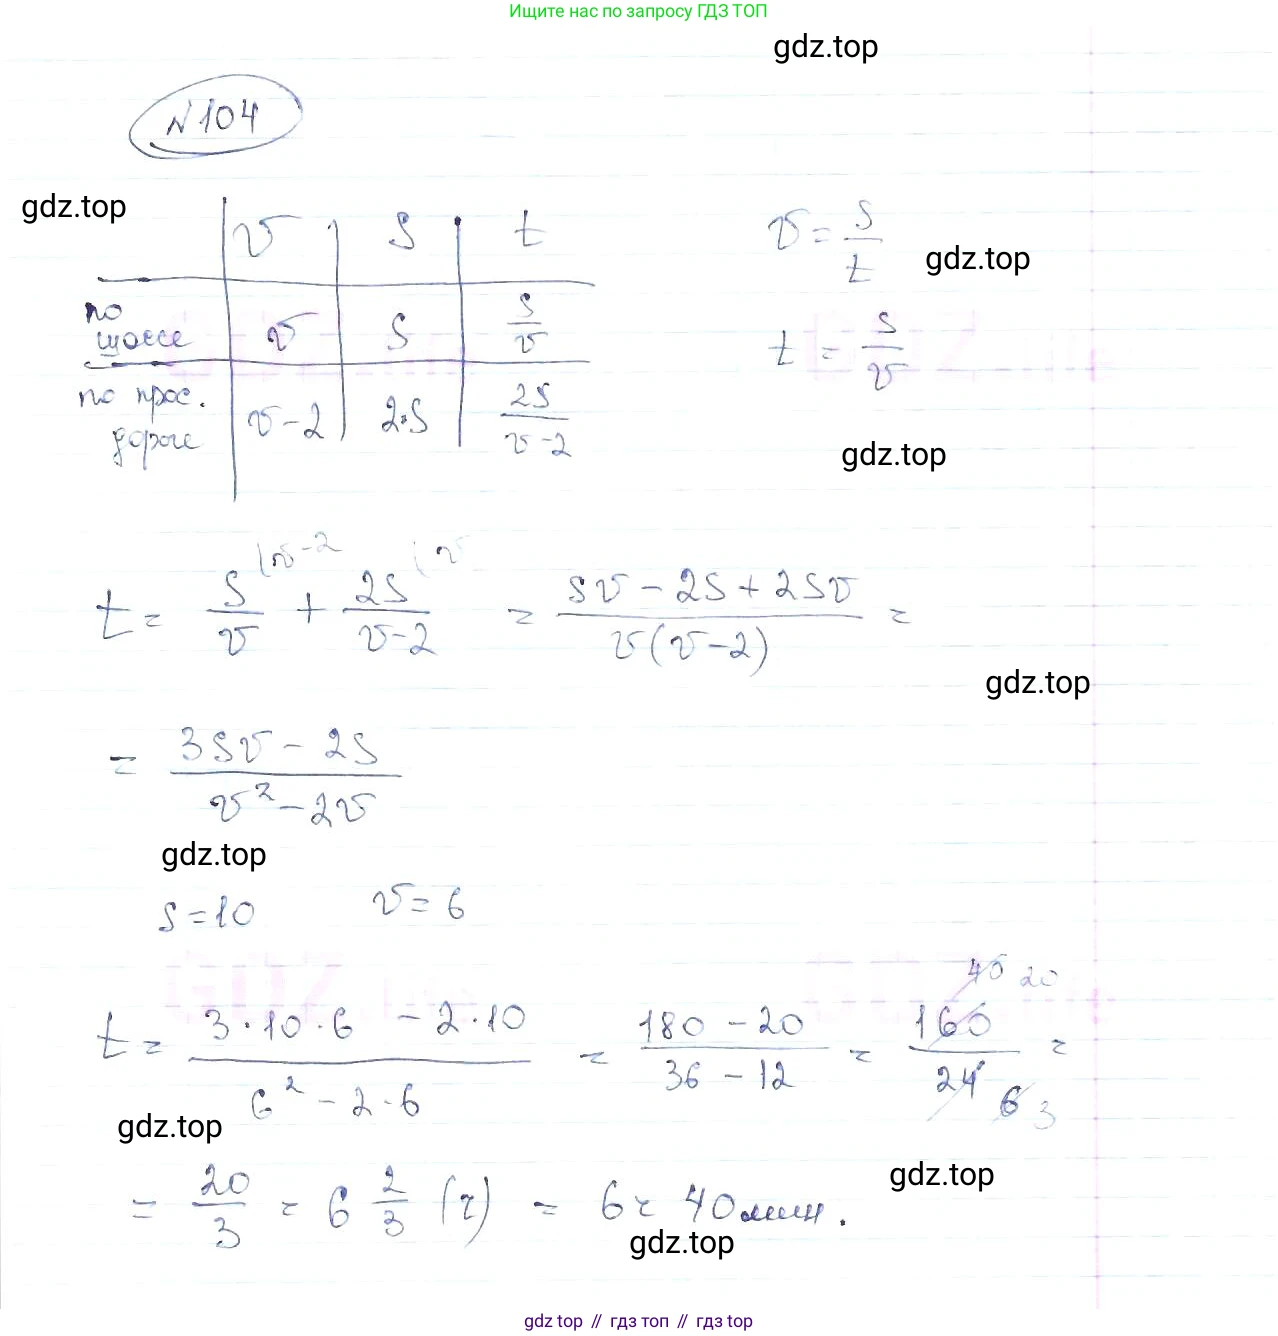 Ищите нас по запросу ГДЗ ТОП
gdz.top
№104
gdz.top
v S t
v = s/t
gdz.top
по шоссе v S s/v
t = s/v
по прос. дороге v-2 2·S 2S/(v-2)
gdz.top
t = S/v (v-2 + 2S/(v-2) (v = (Sv - 2S + 2Sv)/(v(v-2)) =
gdz.top
= (3Sv - 2S)/(v² - 2v)
gdz.top
S = 10 v = 6
t = (3·10·6 - 2·10)/(6² - 2·6) = (180 - 20)/(36 - 12) = 160/24 40 20 6 3 =
gdz.top
gdz.top
= 20/3 = 6 2/3 (ч) = 6ч 40мин.
gdz.top
gdz top // гдз топ // гдз top